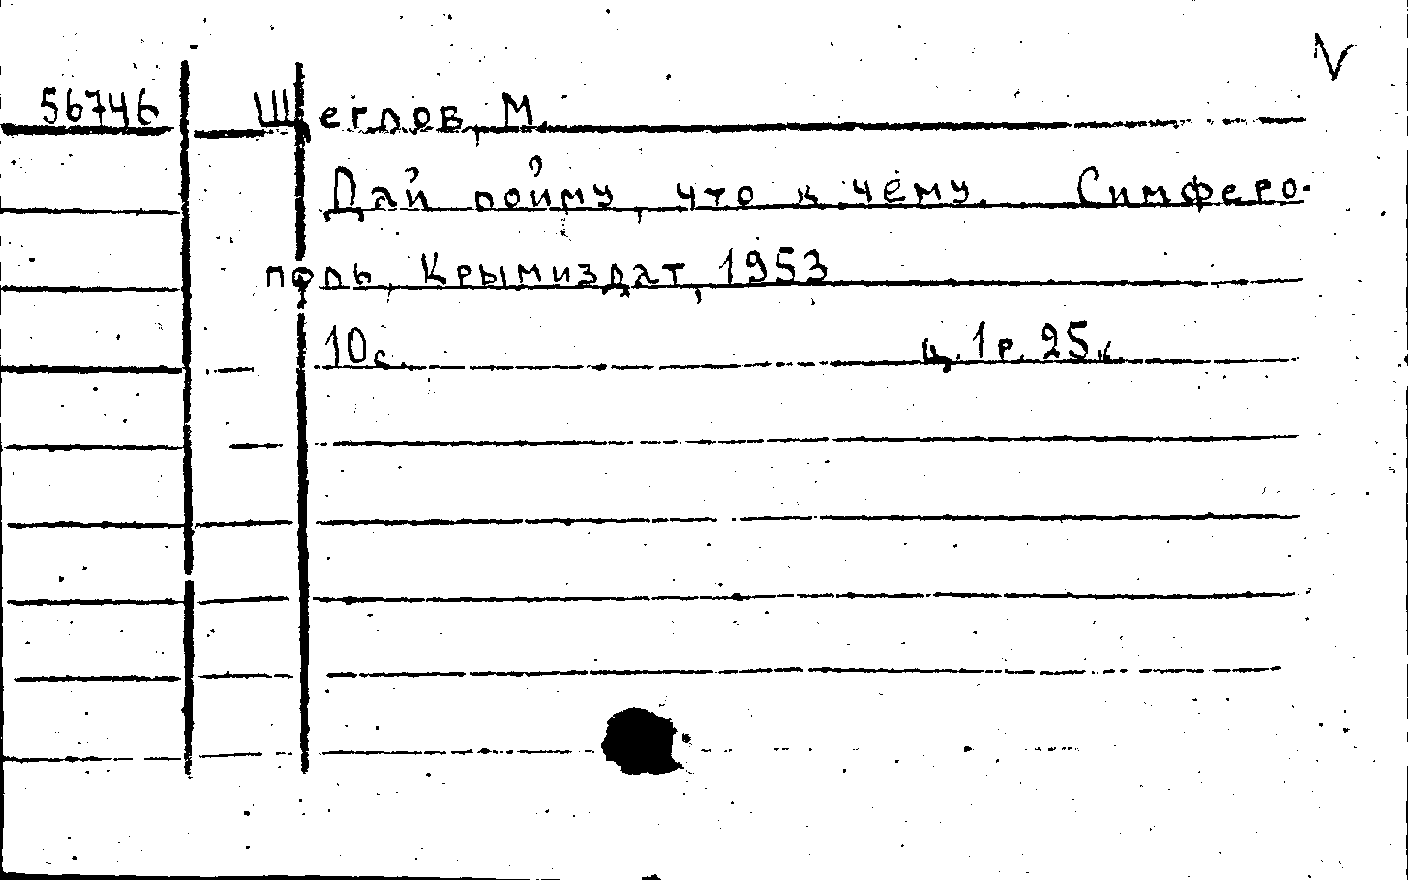 56746 Щеглов, М.
Дай пойму, что к чему. Симферо-
поль, Крымиздат, 1953
10с. ц. 1р. 25к.